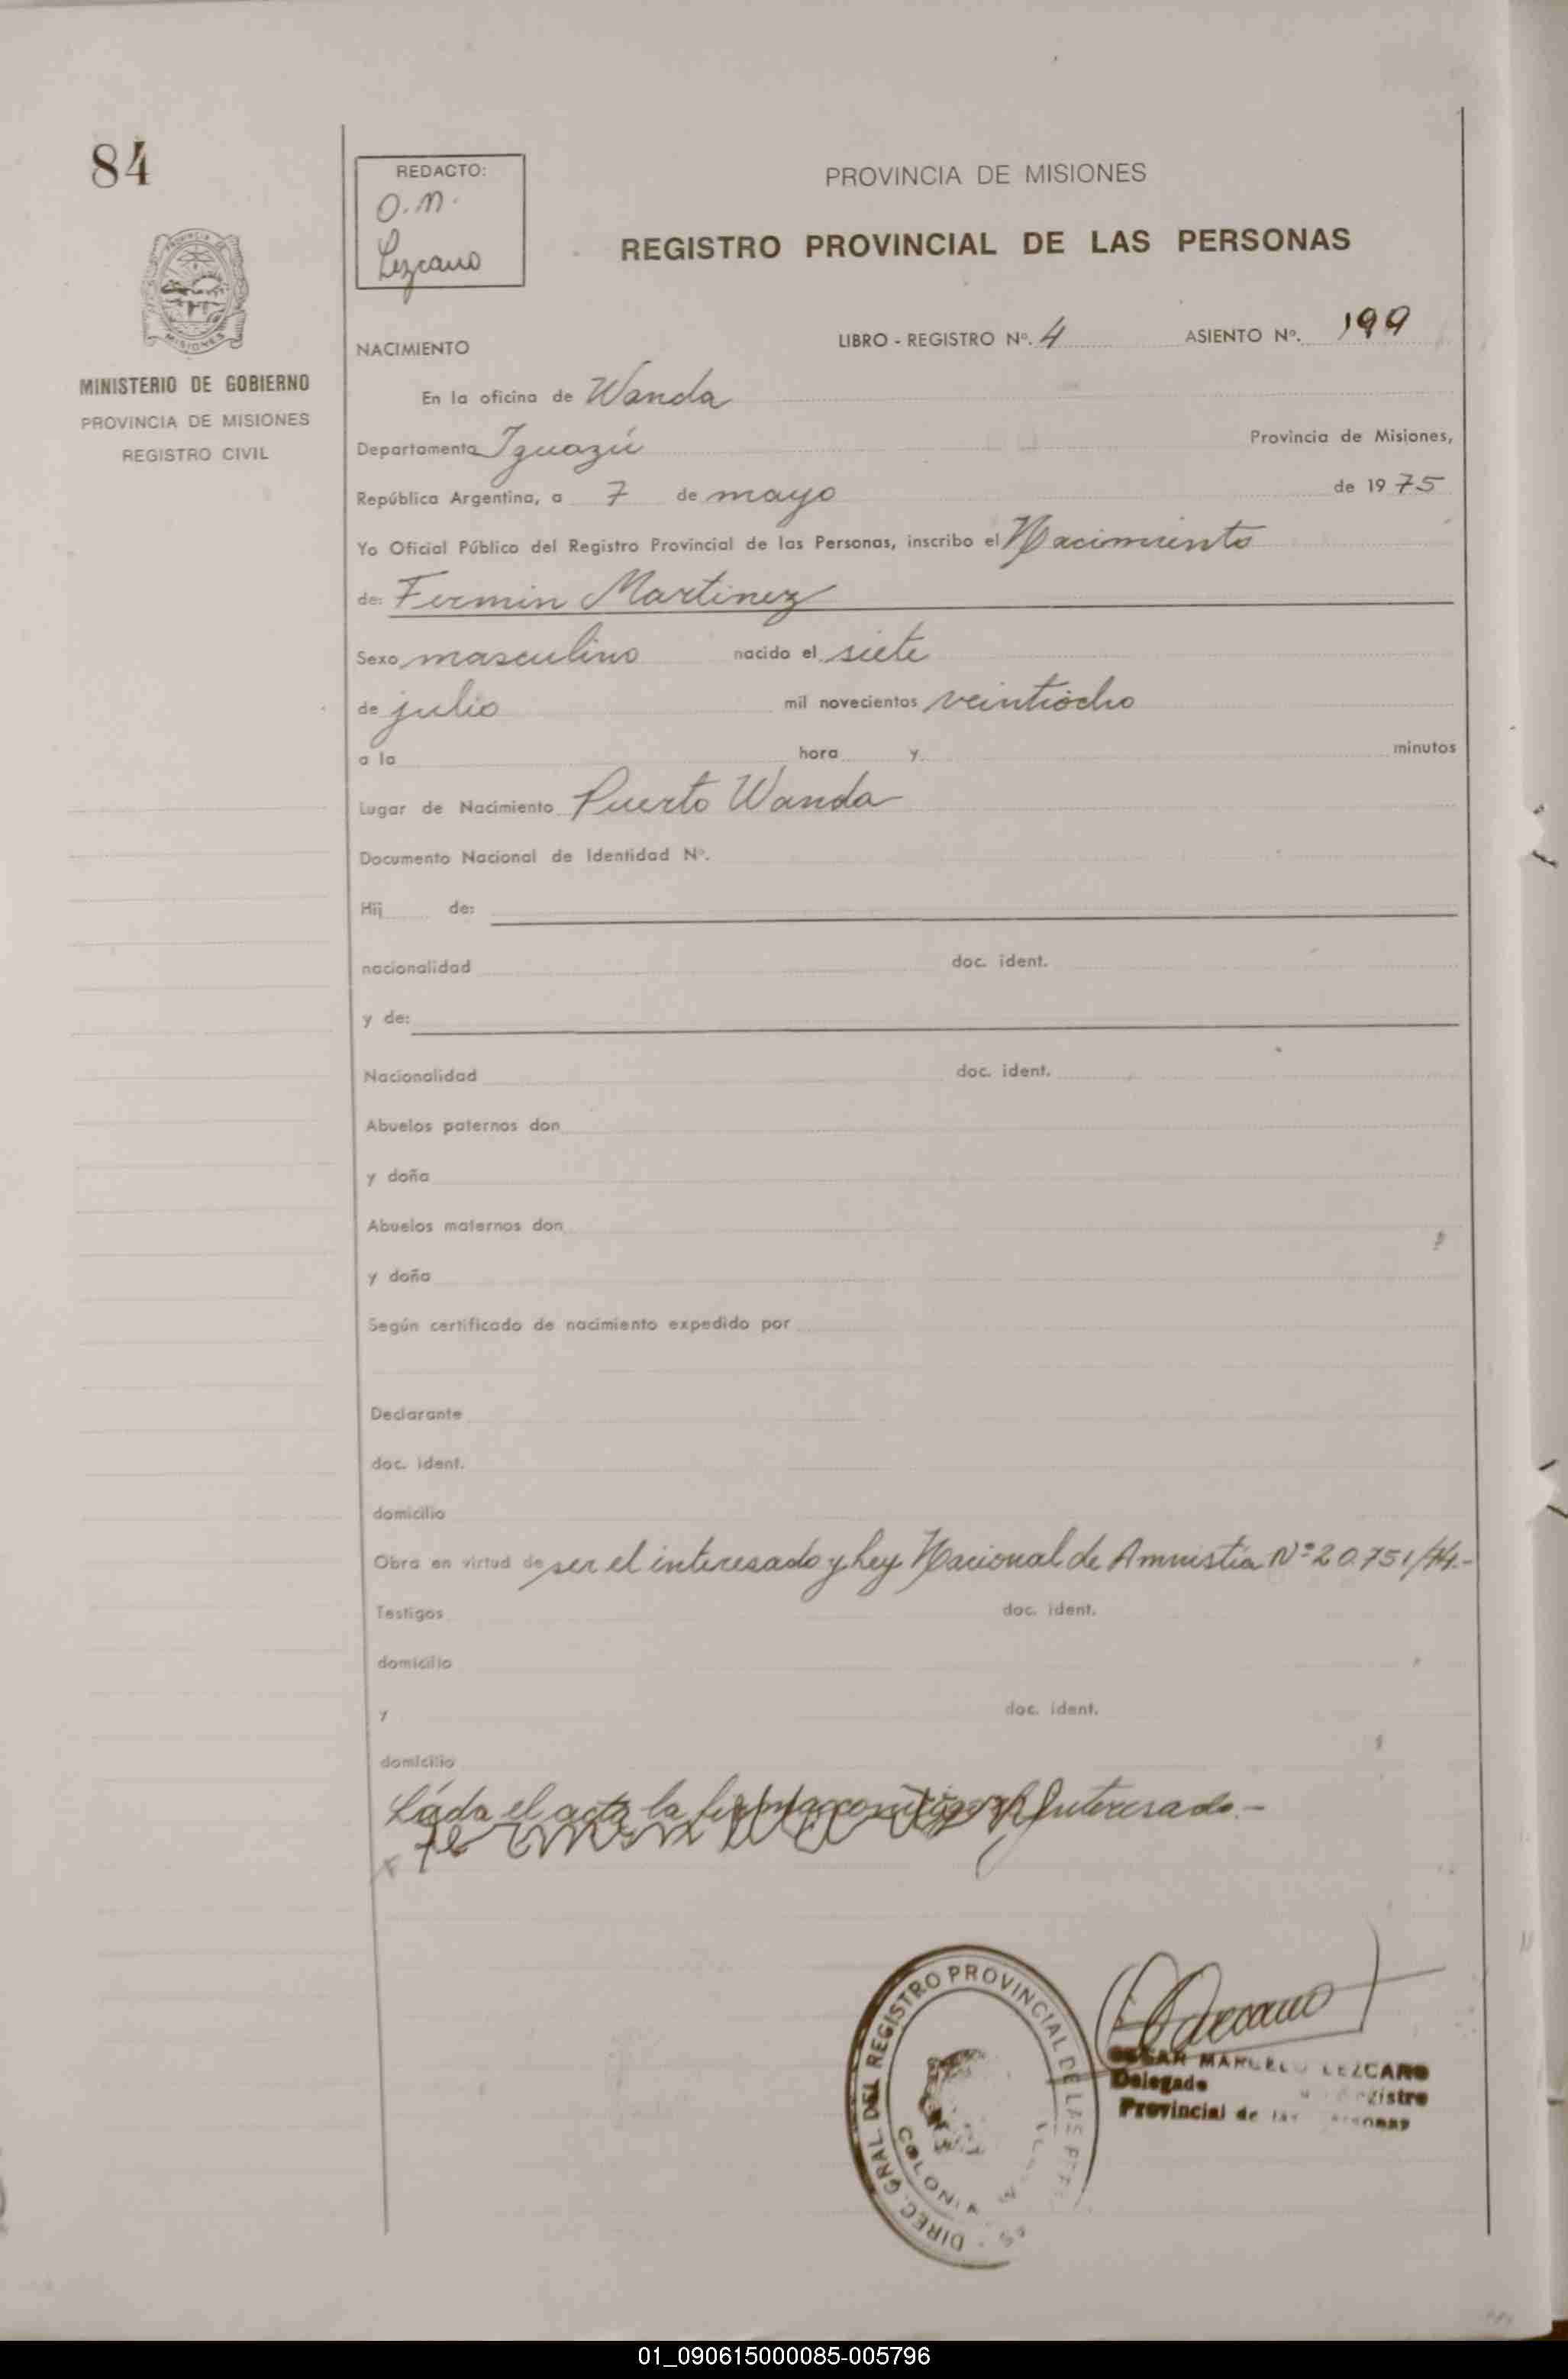 84
REDACTO:
O. M.
Lezcano
PROVINCIA DE MISIONES
REGISTRO PROVINCIAL DE LAS PERSONAS
MISIONES
MINISTERIO DE GOBIERNO
PROVINCIA DE MISIONES
REGISTRO CIVIL
NACIMIENTO
LIBRO - REGISTRO Nº. 4 ASIENTO Nº. 199
En la oficina de Wanda
Departamento Iguazú Provincia de Misiones,
República Argentina, a 7 de mayo de 1975
Yo Oficial Público del Registro Provincial de las Personas, inscribo el Nacimiento
de: Fermin Martinez
Sexo masculino nacido el siete
de julio mil novecientos veintiocho
a la hora y minutos
Lugar de Nacimiento Puerto Wanda
Documento Nacional de Identidad Nº.
Hij de:
nacionalidad doc. ident.
y de:
Nacionalidad doc. ident.
Abuelos paternos don
y doña
Abuelos maternos don
y doña
Según certificado de nacimiento expedido por
Declarante
doc. ident.
domicilio
Obra en virtud de ser el interesado y Ley Nacional de Amnistia Nº 20.751/74.-
Testigos doc. ident.
domicilio
y doc. ident.
domicilio
el acta la Interesado.-
DIREC. GRAL. DEL REGISTRO PROVINCIAL DE LAS
COLONIA
CESAR MARCELO LEZCANO
Delegado Registro
Provincial de las Personas
01_090615000085-005796